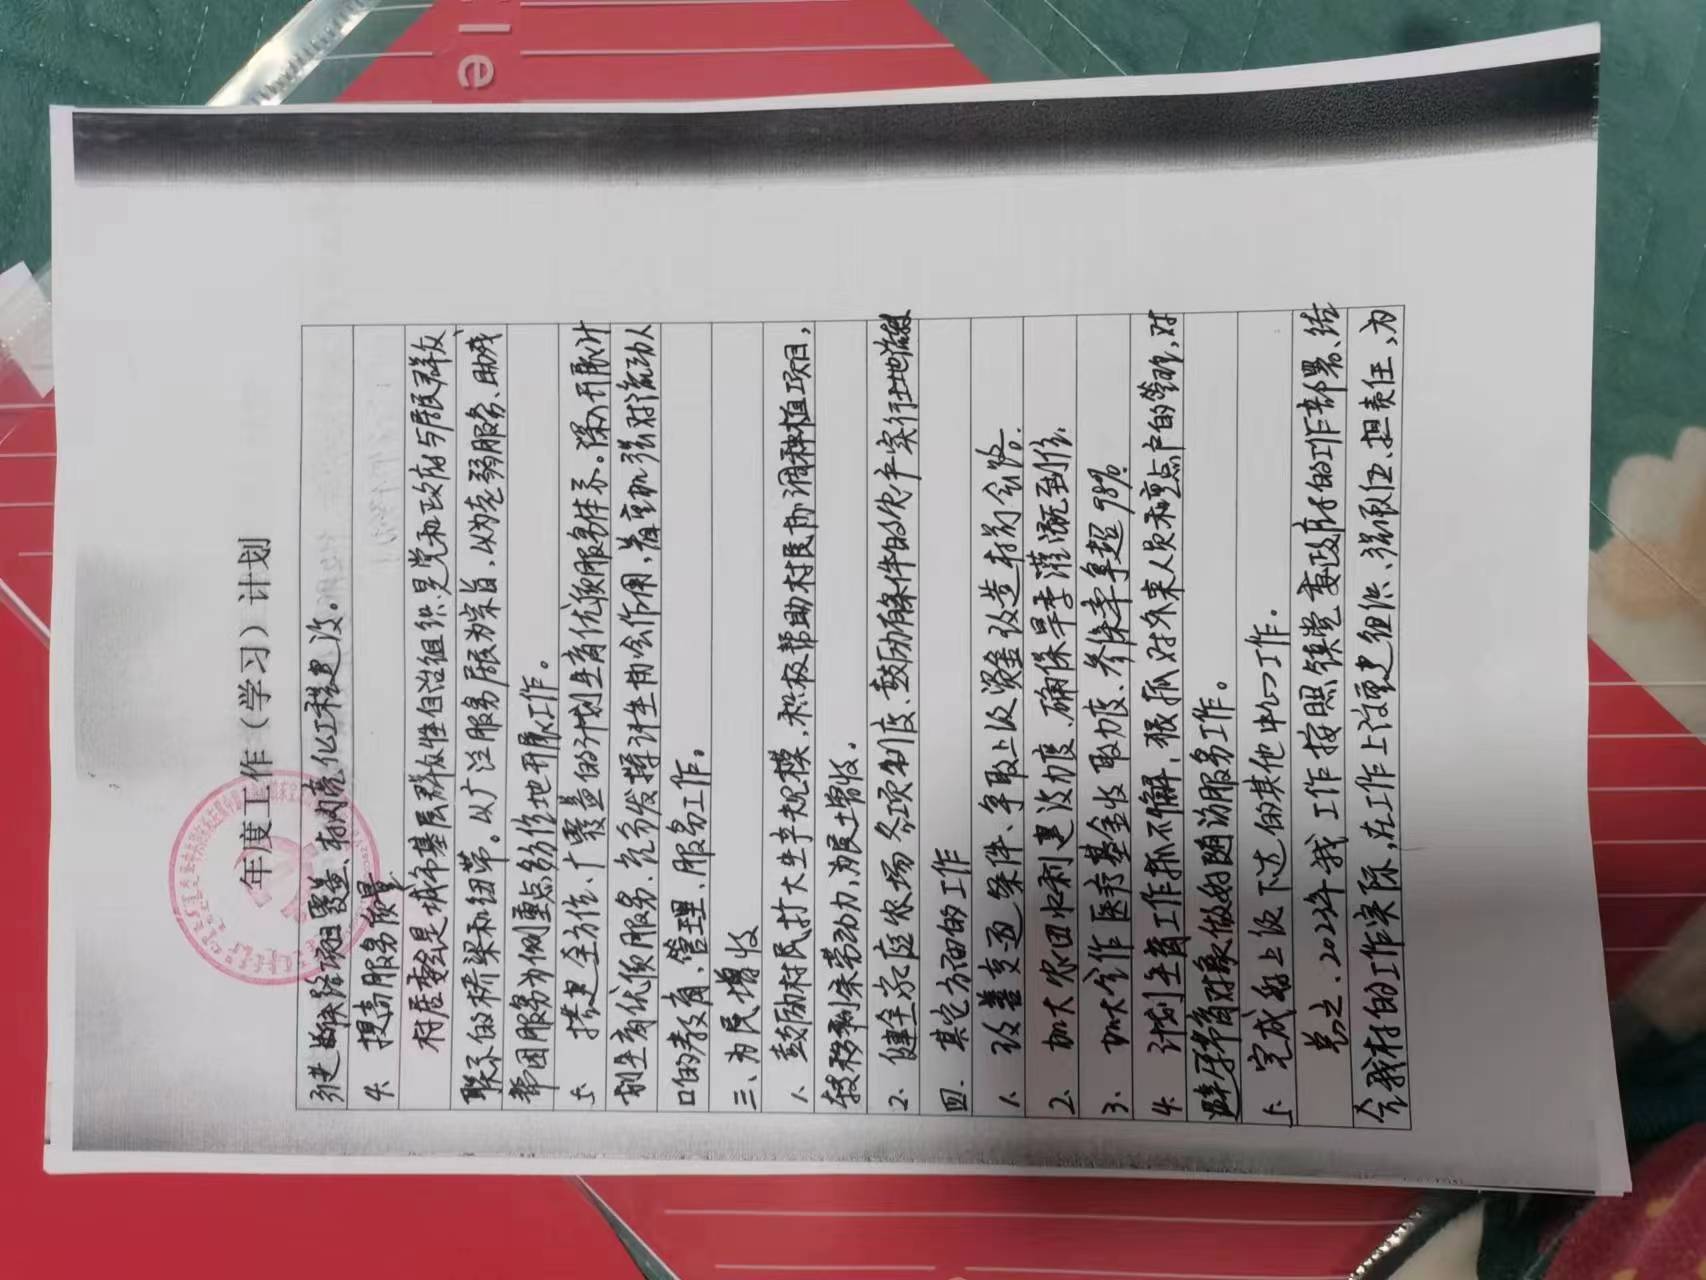 年度工作（学习）计划
引进
4. 提高服务质量
村居委会是城市基层群众性自治组织是党和政府与居民群众
联系的桥梁和纽带。以广泛服务居民为宗旨，以为老弱服务、助残
帮困服务为侧重点的作地开展工作。
5. 搭建全方位、广覆盖的计划生育优质服务体系。深入开展计
划生育优质服务、充分发挥计生协会作用，着重加强对流动人
口的教育、管理、服务工作。
三、为民增收
1. 鼓励村民扩大生产规模、积极帮助村民协调种植项目，
转移剩余劳动力，为民土增收。
2. 健全家庭农场各项制度、鼓励有条件的农户实行土地流转
四. 其它方面的工作
1. 改善交通条件、争取上级资金改造村前公路。
2. 加大农田水利建设力度、确保旱季灌溉到位.
3. 加大合作医疗基金收取力度、参保率率超98%.
4. 计划生育工作抓不懈、狠抓对外来人员和重点户的管理，对
避孕节育对象做好随访服务工作。
5. 完成好上级下达的其他中心工作。
总之、2023年我工作按照镇党委政府的工作部署、结
合我村的工作实际，在工作上注重建组织、强队伍、担责任，为